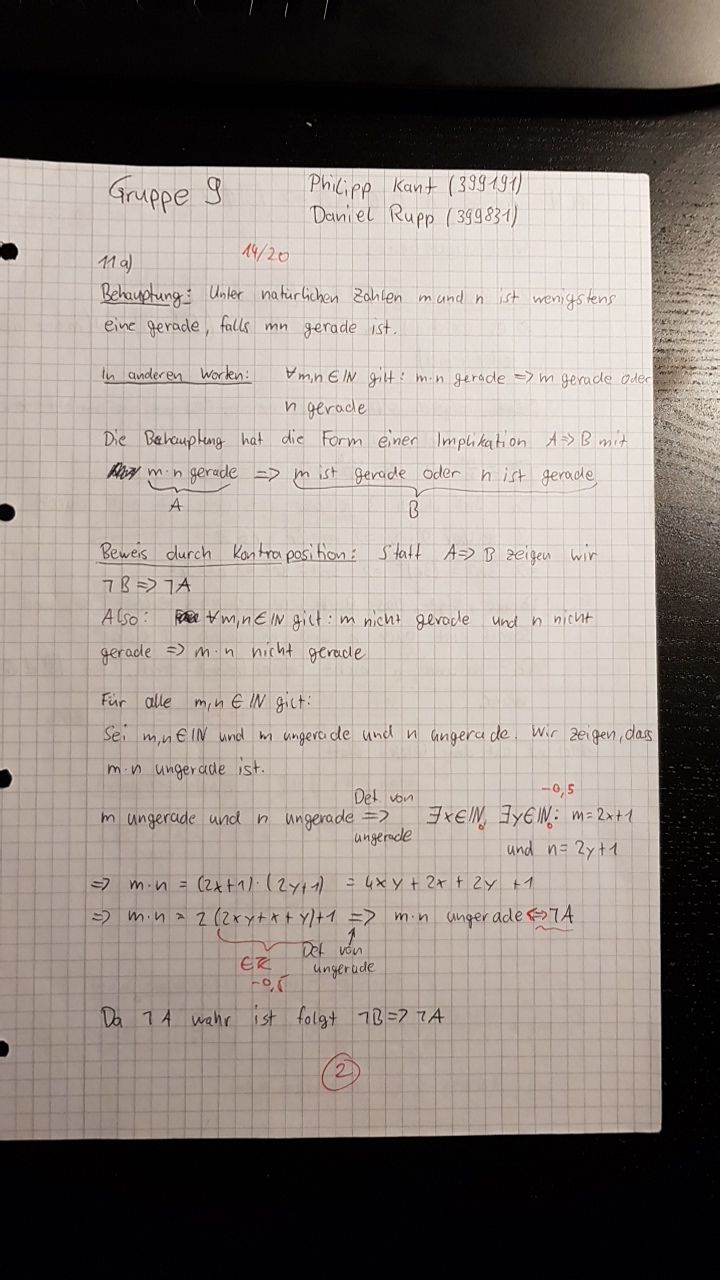 Gruppe 9
Philipp Kant (399191)
Daniel Rupp (399831)
14/20
11a)
Behauptung: Unter natürlichen Zahlen m und n ist wenigstens
eine gerade, falls mn gerade ist.
In anderen Worten: ∀m,n∈ℕ gilt: m·n gerade => m gerade oder
n gerade
Die Behauptung hat die Form einer Implikation A=>B mit
m·n gerade => m ist gerade oder n ist gerade
A B
Beweis durch Kontraposition: Statt A=>B zeigen wir
¬B=>¬A
Also: ∀m,n∈ℕ gilt: m nicht gerade und n nicht
gerade => m·n nicht gerade
Für alle m,n∈ℕ gilt:
Sei m,n∈ℕ und m ungerade und n ungerade. Wir zeigen, dass
m·n ungerade ist.
-0,5
Def. von
m ungerade und n ungerade => ∃x∈ℕ₀ ∃y∈ℕ₀: m=2x+1
ungerade
und n=2y+1
=> m·n = (2x+1)·(2y+1) = 4xy + 2x + 2y +1
=> m·n = 2(2xy+x+y)+1 => m·n ungerade <=> ¬A
∈ℤ
Def von
ungerade
-0,5
Da ¬A wahr ist folgt ¬B=>¬A
2